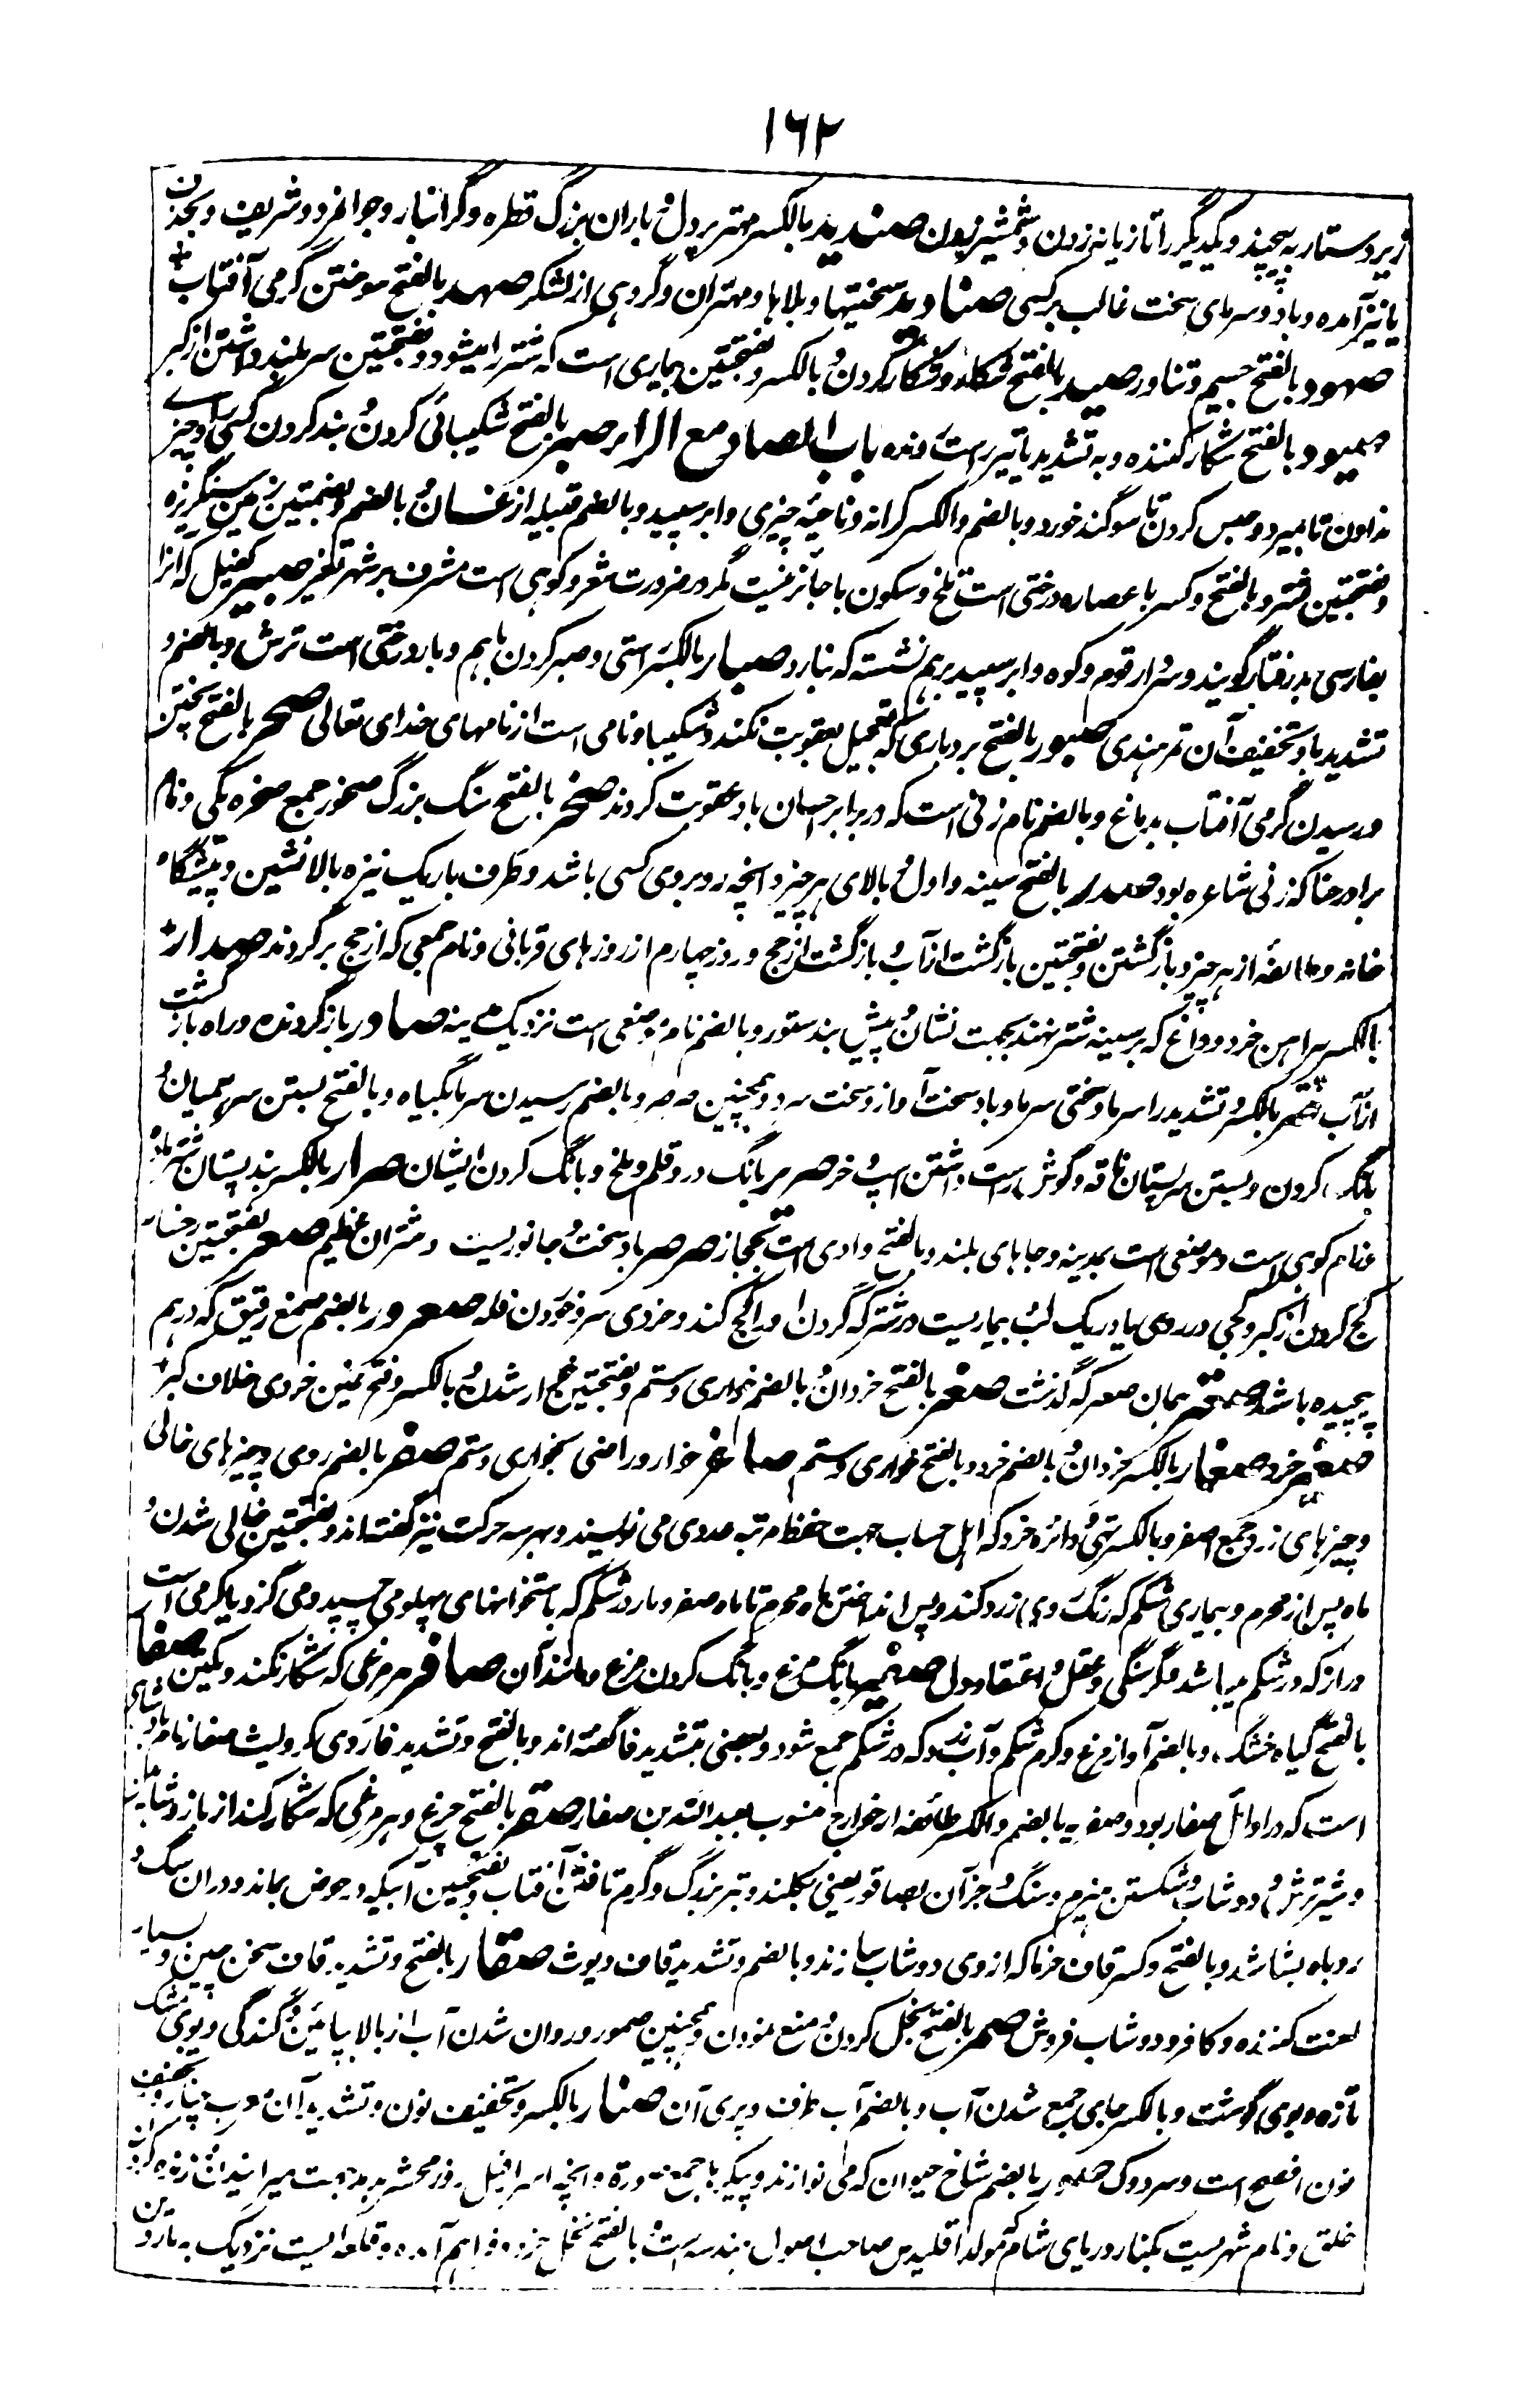 ١٦٢
زیر دستار به پیچند و یکدیگر را تازیانه زدن و شمشیر زدن صندید بالکسر مهتر بر دل و باران بزرگ قطره و گرانبار و جوانمرد و شریف و بخدن
یا نیز آمده و باد و سرمای سخت غالب بر کسی صنادید سختیها و بلاها و مهتران و گروهی از لشکر صهد بالفتح سوختن گرمی آفتاب
صهود بالفتح جسیم و تناور صید بالفتح شکار و شکار کردن و بالکسر و بفتحتین بیماری است که شتر را میشود و بفتحتین سر بلند داشتن از کبر
صیود بالفتح شکار کننده و به تشدید یا تیر راست رونده باب الصاد مع الراء صبر بالفتح شکیبائی کردن و بند کردن کسی را و چیزی
ندادن تا بمیرد و حبس کردن تا سوگند خورد و بالضم و الکسر کرانه و ناحیه چیزی و ابر سپید و بالضم قبیله از غسان و بالضم و بضمتین زمین سنگریزه
و بفتحتین فشرد و بالفتح و کسر با عصاره درختی است تلخ و سکون با جائز نیست مگر در ضرورت شعر و کوهی است مشرف بر شهر تعز صبیر کفیل که انرا
بفارسی بدرفتار گویند و سردار قوم و کوه و ابر سپید بر هم نشسته که نبارد صبار بالکسر استی و صبر کردن باهم و بار درختی است ترش و بالضم و
تشدید با و تخفیف آن تمر هندی صبور بالفتح بردباری که تعجیل بعقوبت نکند و شکیبا و نامی است از نامهای خدای تعالی صحر بالفتح پختن
و رسیدن گرمی آفتاب بدماغ و بالضم نام زنی است که در برابر احسان باد عقوبت کردند صخر بالفتح سنگ بزرگ صخور جمع صخره یکی و نام
برادر خنسا که زنی شاعره بود صدر بالفتح سینه و اول و بالای هر چیز و انچه روبروی کسی باشد و طرف باریک نیزه بالانشین و پیشگاه
خانه و طائفه از هر چیز و بازگشتن و بفتحتین بازگشت از آب و بازگشت از حج و روز چهارم از روزهای قربانی و نام جمعی که از حج برگردند صدار
بالکسر پیراهن خرد و داغ که بر سینه شتر نهند بجهت نشان و پیش بند ستور و بالضم نام موضعی است نزدیک مدینه صادر بازگردنده و راه بازگشت
از آب صر بالکسر و تشدید را سرما و سختی سرما و باد سخت آواز و سخت سرد و همچنین صرصر و بالضم رسیدن سرما بگیاه و بالفتح بستن سر همیان و
بانگ کردن و بستن سر پستان ناقه و گوش راست داشتن اسپ و خر صریر بانگ در و قلم و ملخ و بانگ کردن ایشان صرار بالکسر بند پستان شتر ماده
و نام کوهی است و موضعی است بمدینه و جاهای بلند و بالفتح وادی است بحجاز صرصر باد سخت و جانوریست و شتران عظیم صعر بفتحتین رخسار
کج کردن از کبر و کجی در روی یا در یک لب و بیماریست در شتر که گردن او را کج کند و خردی سر و خوردن فله صعرور بالضم صمغ رقیق که درهم
پیچیده باشد صمعر همان صعر که گذشت صغر بالفتح خردان و بالضم خواری و ستم و بفتحتین خوار شدن و بالکسر و فتح غین خردی خلاف کبر
صغیر خرد صغار بالکسر خردان و بالضم خرد و بالفتح خواری و ستم صاغر خوار و راضی بخواری و ستم صفر بالضم روی و چیزهای خالی
و چیزهای زرد جمع اصفر و بالکسر تهی و دائره خرد که اهل حساب جهت حفظ مرتبه عددی می نویسند و بهر سه حرکت نیز گفته اند و بفتحتین خالی شدن و
ماه پس از محرم و بیماری شکم که رنگ روی زرد کند و پس انداختن ماه محرم تا ماه صفر و مار در شکم که باستخوانهای پهلو می چسپد و می گزد یا کرمی است
دراز که در شکم میباشد و گرسنگی و عقل و اعتقاد دل صفیر بانگ مرغ و بانگ کردن مرغ و مانند آن صافر هر مرغی که شکار نکند و یکمین صفار
بالفتح گیاه خشک و بالضم آواز مرغ و کرم شکم و آب زرد که در شکم جمع شود و بعضی بتشدید فا گفته اند و بالفتح و تشدید فا روی گر و لیث صفار نام پادشاهی
است که در اوائل صفار بود و صفریه بالضم و الکسر طائفه از خوارج منسوب بعبدالله بن صفار صقر بالفتح چرغ و هر مرغی که شکار کند از باز و شاهین
و شیر ترش و دوشاب و شکستن هیزم و سنگ و جز آن بصاقور یعنی کلند و تبر بزرگ و گرم تافتن آفتاب و بفتحتین آبیکه در حوض بماند و دران سگ و
روباه بشاشد و بالفتح و کسر قاف خرما که از وی دوشاب سازند و بالضم و تشدید قاف دیوث صقار بالفتح و تشدید قاف سخن چین و بسیار
لعنت کننده و کافر و دوشاب فروش صمر بالفتح بخل کردن و منع نمودن و همچنین صمور و روان شدن آب از بالا بپائین و گندگی و بوی مشک
تازه و بوی گوشت و بالکسر جای جمع شدن آب و بالضم آب طرف و پری آن صنار بالکسر و تخفیف نون و تشدید آن معرب چنار و بتخفیف
نون افصح است و سر دوک صور بالضم شاخ حیوان که می نوازند و پیکرها جمع صورة و انچه اسرافیل روز محشر بدمد بجهت میرانیدن و زنده کردن
خلق و نام شهریست بکنار دریای شام مولد اقلیدس صاحب اصول هندسه است و بالفتح نخل خرد و فراهم آمده و قلعه ایست نزدیک به ماردین